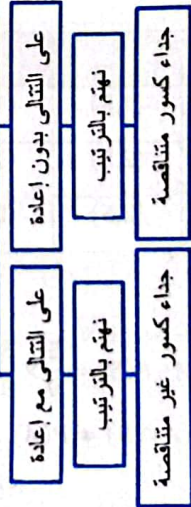 على التتالي بدون إعادة
نهتم بالترتيب
جداء كسور متناقصة
على التتالي مع إعادة
نهتم بالترتيب
جداء كسور غير متناقصة